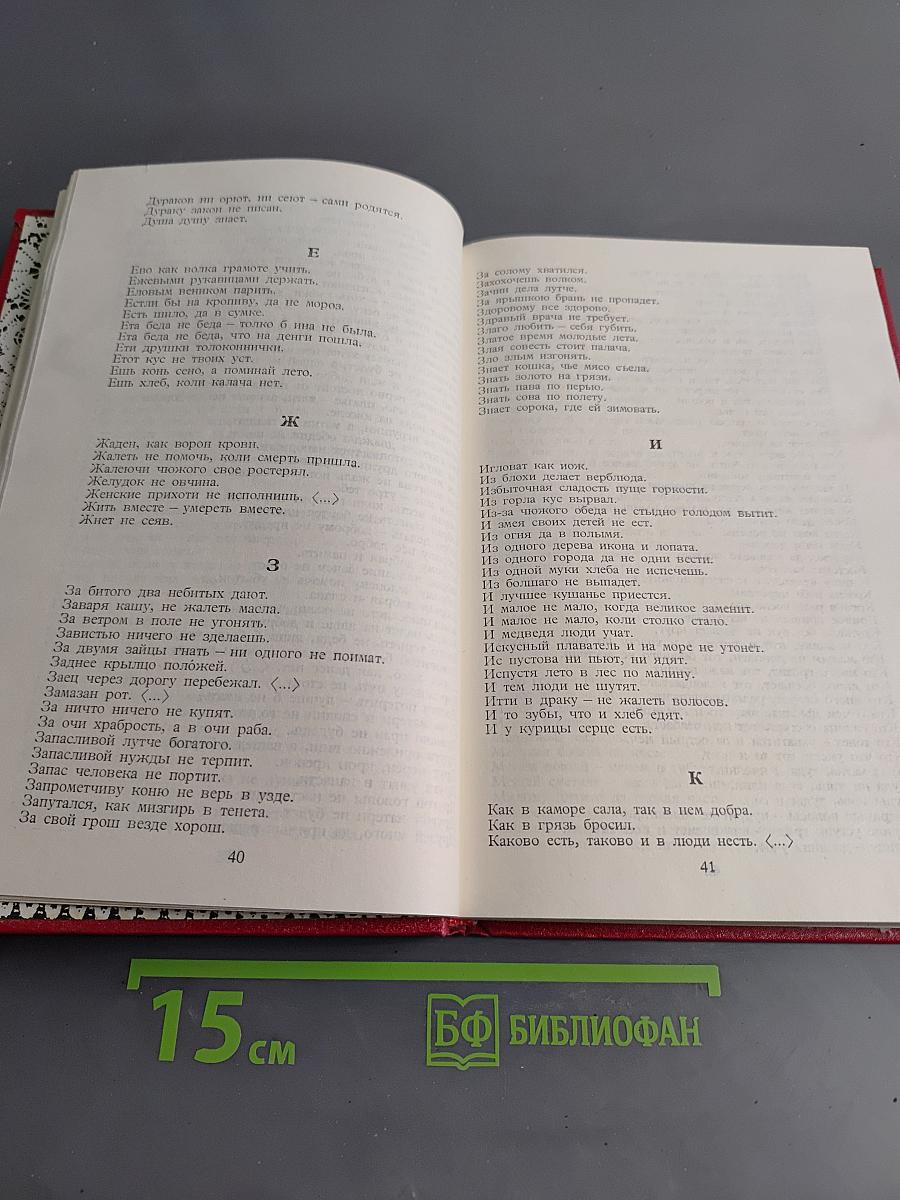 Дураков ни орют, ни сеют – сами родятся.
Дураку закон не писан.
Душа душу знает.
Е
Ево как волка грамоте учить.
Ежевыми рукавицами держать.
Еловым веником парить.
Естли бы на кропиву, да не мороз.
Есть шило, да в сумке.
Ета беда не беда – толко б ина не была.
Ета беда не беда, что на денги пошла.
Ети друшки толоконнички.
Етот кус не твоих уст.
Ешь конь сено, а поминай лето.
Ешь хлеб, коли калача нет.
Ж
Жаден, как ворон крови.
Жалеть не помочь, коли смерть пришла.
Жалеючи чюжого свое ростерял.
Желудок не овчина.
Женские прихоти не исполнишь. 〈...〉
Жить вместе – умереть вместе.
Жнет не сеяв.
З
За битого два небитых дают.
Заваря кашу, не жалеть масла.
За ветром в поле не угонять.
Завистью ничего не зделаешь.
За двумя зайцы гнать – ни одного не поимат.
Заднее крылцо поло́жей.
Заец через дорогу перебежал. 〈...〉
Замазан рот. 〈...〉
За ничто ничего не купят.
За очи храбрость, а в очи раба.
Запасливой лутче богатого.
Запасливой нужды не терпит.
Запас человека не портит.
Запрометчиву коню не верь в узде.
Запутался, как мизгирь в тенета.
За свой грош везде хорош.
40
За солому хватился.
Захохочешь волком.
Зачин дела лутче.
За ярышкою брань не пропадет.
Здоровому все здорово.
Здравый врача не требует.
Злаго любить – себя губить.
Златое время молодые лета.
Злая совесть стоит палача.
Зло злым изгонять.
Знает кошка, чье мясо съела.
Знать золото на грязи.
Знать пава по перью.
Знать сова по полету.
Знает сорока, где ей зимовать.
И
Игловат как иож.
Из блохи делает верблюда.
Избыточная сладость пуще горкости.
Из горла кус вырвал.
Из-за чюжого обеда не стыдно голодом вытит.
И змея своих детей не ест.
Из огня да в полымя.
Из одного дерева икона и лопата.
Из одного города да не одни вести.
Из одной муки хлеба не испечешь.
Из болшаго не выпадет.
И лучшее кушанье приестся.
И малое не мало, когда великое заменит.
И малое не мало, коли столко стало.
И медведя люди учат.
Искусный плаватель и на море не утонет.
Ис пустова ни пьют, ни ядят.
Испустя лето в лес по малину.
И тем люди не шутят.
Итти в драку – не жалеть волосов.
И то зубы, что и хлеб едят.
И у курицы серце есть.
К
Как в каморе сала, так в нем добра.
Как в грязь бросил.
Каково есть, таково и в люди несть. 〈...〉
41
15 см
БФ БИБЛИОФАН